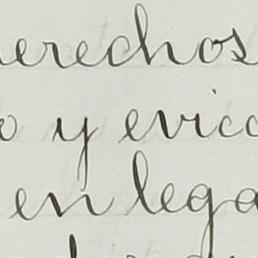 erechos
o y evicc
en lega